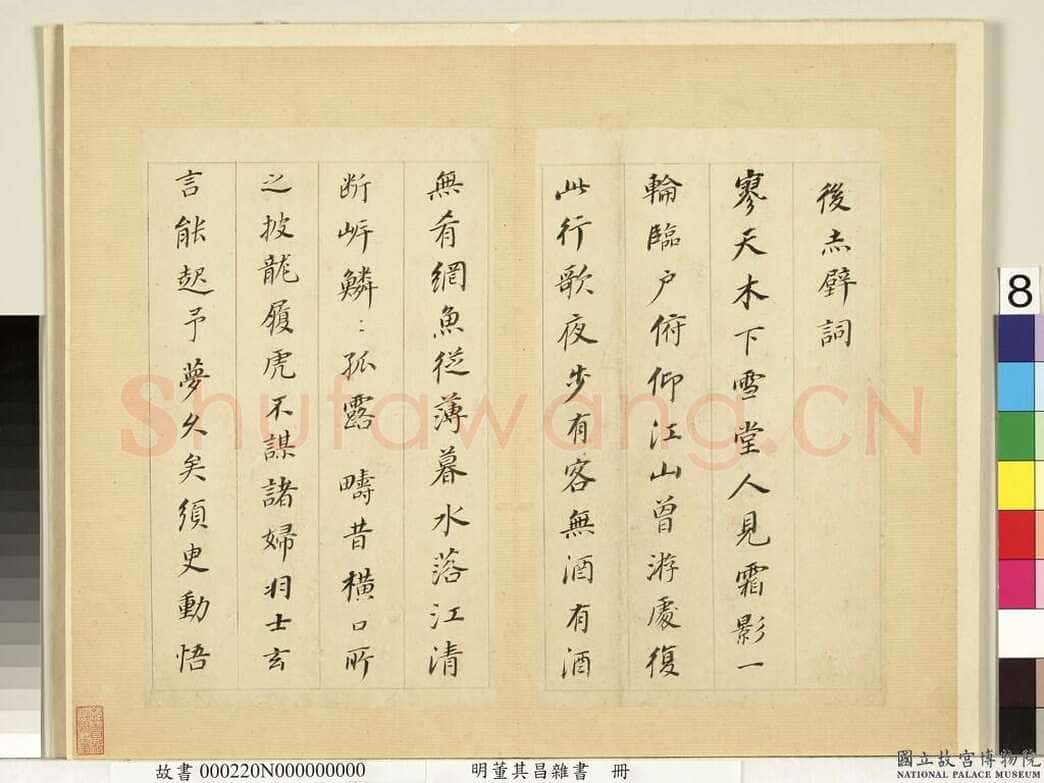 後赤壁詞
寥天木下雪堂人見霜影一
輪臨户俯仰江山曾游處復
此行歌夜步有客無酒有酒
無肴網魚從薄暮水落江清
断岸鱗〻孤露 疇昔横口所
之披龍履虎不謀諸婦羽士玄
言能起予夢久矣須史動悟
8
Shufawang.CN
故書 000220N000000000
明董其昌雜書 冊
國立故宮博物院
NATIONAL PALACE MUSEUM